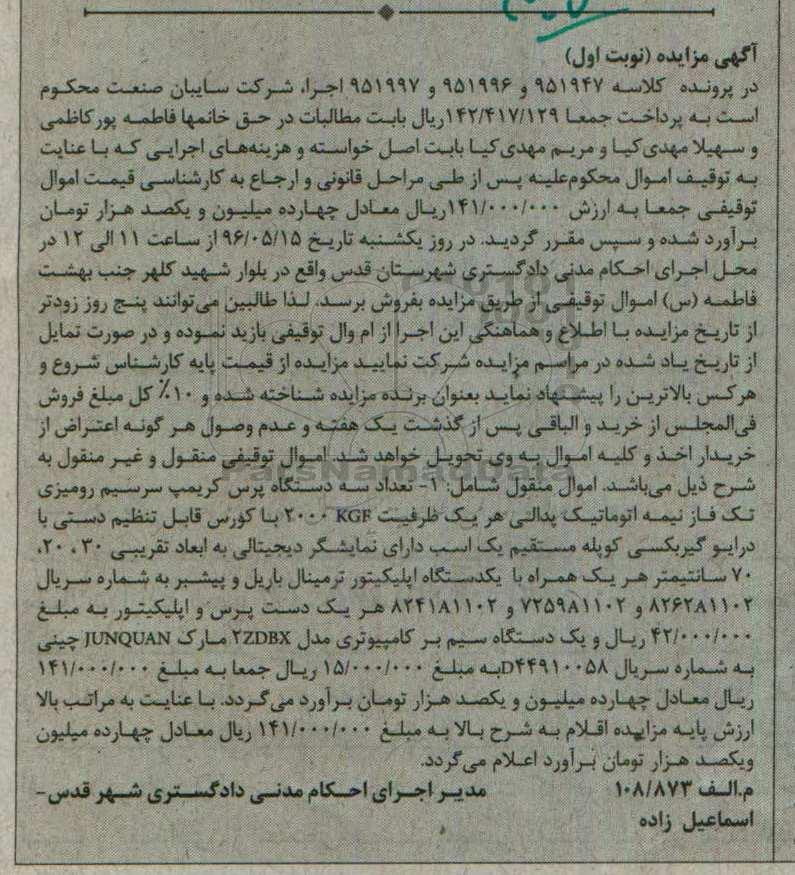 آگهی مزایده (نوبت اول)
در پرونده کلاسه ۹۵۱۹۴۷ و ۹۵۱۹۹۶ و ۹۵۱۹۹۷ اجرا، شرکت سایبان صنعت محکوم
است به پرداخت جمعا ۱۴۲/۴۱۷/۱۲۹ریال بابت مطالبات در حق خانمها فاطمه پورکاظمی
و سهیلا مهدی‌کیا و مریم مهدی‌کیا بابت اصل خواسته و هزینه‌های اجرایی که با عنایت
به توقیف اموال محکوم‌علیه پس از طی مراحل قانونی و ارجاع به کارشناسی قیمت اموال
توقیفی جمعا به ارزش ۱۴۱/۰۰۰/۰۰۰ریال معادل چهارده میلیون و یکصد هزار تومان
برآورد شده و سپس مقرر گردید. در روز یکشنبه تاریخ ۹۶/۰۵/۱۵ از ساعت ۱۱ الی ۱۲ در
محل اجرای احکام مدنی دادگستری شهرستان قدس واقع در بلوار شهید کلهر جنب بهشت
فاطمه (س) اموال توقیفی از طریق مزایده بفروش برسد. لذا طالبین می‌توانند پنج روز زودتر
از تاریخ مزایده با اطلاع و هماهنگی این اجرا از ام وال توقیفی بازید نموده و در صورت تمایل
از تاریخ یاد شده در مراسم مزایده شرکت نمایید مزایده از قیمت پایه کارشناس شروع و
هرکس بالاترین را پیشنهاد نماید بعنوان برنده مزایده شناخته شده و ۱۰٪ کل مبلغ فروش
فی‌المجلس از خرید و الباقی پس از گذشت یک هفته و عدم وصول هر گونه اعتراض از
خریدار اخذ و کلیه اموال به وی تحویل خواهد شد. اموال توقیفی منقول و غیر منقول به
شرح ذیل می‌باشد. اموال منقول شامل: ۱- تعداد سه دستگاه پرس کریمپ سرسیم رومیزی
تک فاز نیمه اتوماتیک پدالی هر یک ظرفیت ۲۰۰۰ KGF با کورس قابل تنظیم دستی با
درایو گیربکسی کوپله مستقیم یک اسب دارای نمایشگر دیجیتالی به ابعاد تقریبی ۳۰ ، ۲۰،
۷۰ سانتیمتر هر یک همراه با یکدستگاه اپلیکیتور ترمینال باریل و پیشبر به شماره سریال
۸۲۶۲۸۱۱۰۲ و ۷۲۵۹۸۱۱۰۲ و ۸۲۴۱۸۱۱۰۲ هر یک دست پرس و اپلیکیتور به مبلغ
۴۲/۰۰۰/۰۰۰ ریال و یک دستگاه سیم بر کامپیوتری مدل ۲ZDBX مارک JUNQUAN چینی
به شماره سریال D۴۴۹۱۰۰۵۸به مبلغ ۱۵/۰۰۰/۰۰۰ ریال جمعا به مبلغ ۱۴۱/۰۰۰/۰۰۰
ریال معادل چهارده میلیون و یکصد هزار تومان برآورد می‌گردد. با عنایت به مراتب بالا
ارزش پایه مزایده اقلام به شرح بالا به مبلغ ۱۴۱/۰۰۰/۰۰۰ ریال معادل چهارده میلیون
ویکصد هزار تومان برآورد اعلام می‌گردد.
م.الف ۱۰۸/۸۷۳ مدیر اجرای احکام مدنی دادگستری شهر قدس-
اسماعیل زاده